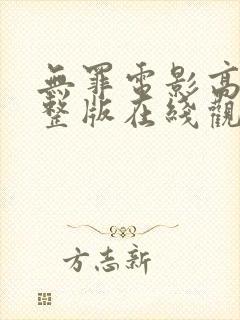 無罪電影高
整版在綫觀
方志新